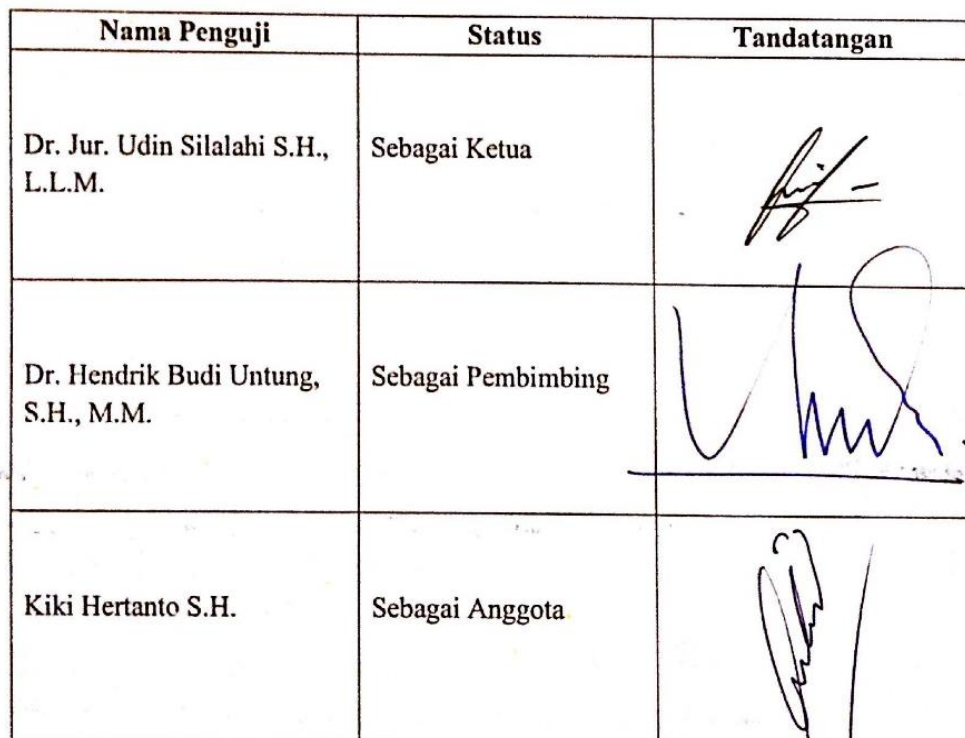 Nama Penguji Status Tandatangan
Dr. Jur. Udin Silalahi S.H., Sebagai Ketua
L.L.M.
Dr. Hendrik Budi Untung, Sebagai Pembimbing
S.H., M.M.
Kiki Hertanto S.H. Sebagai Anggota